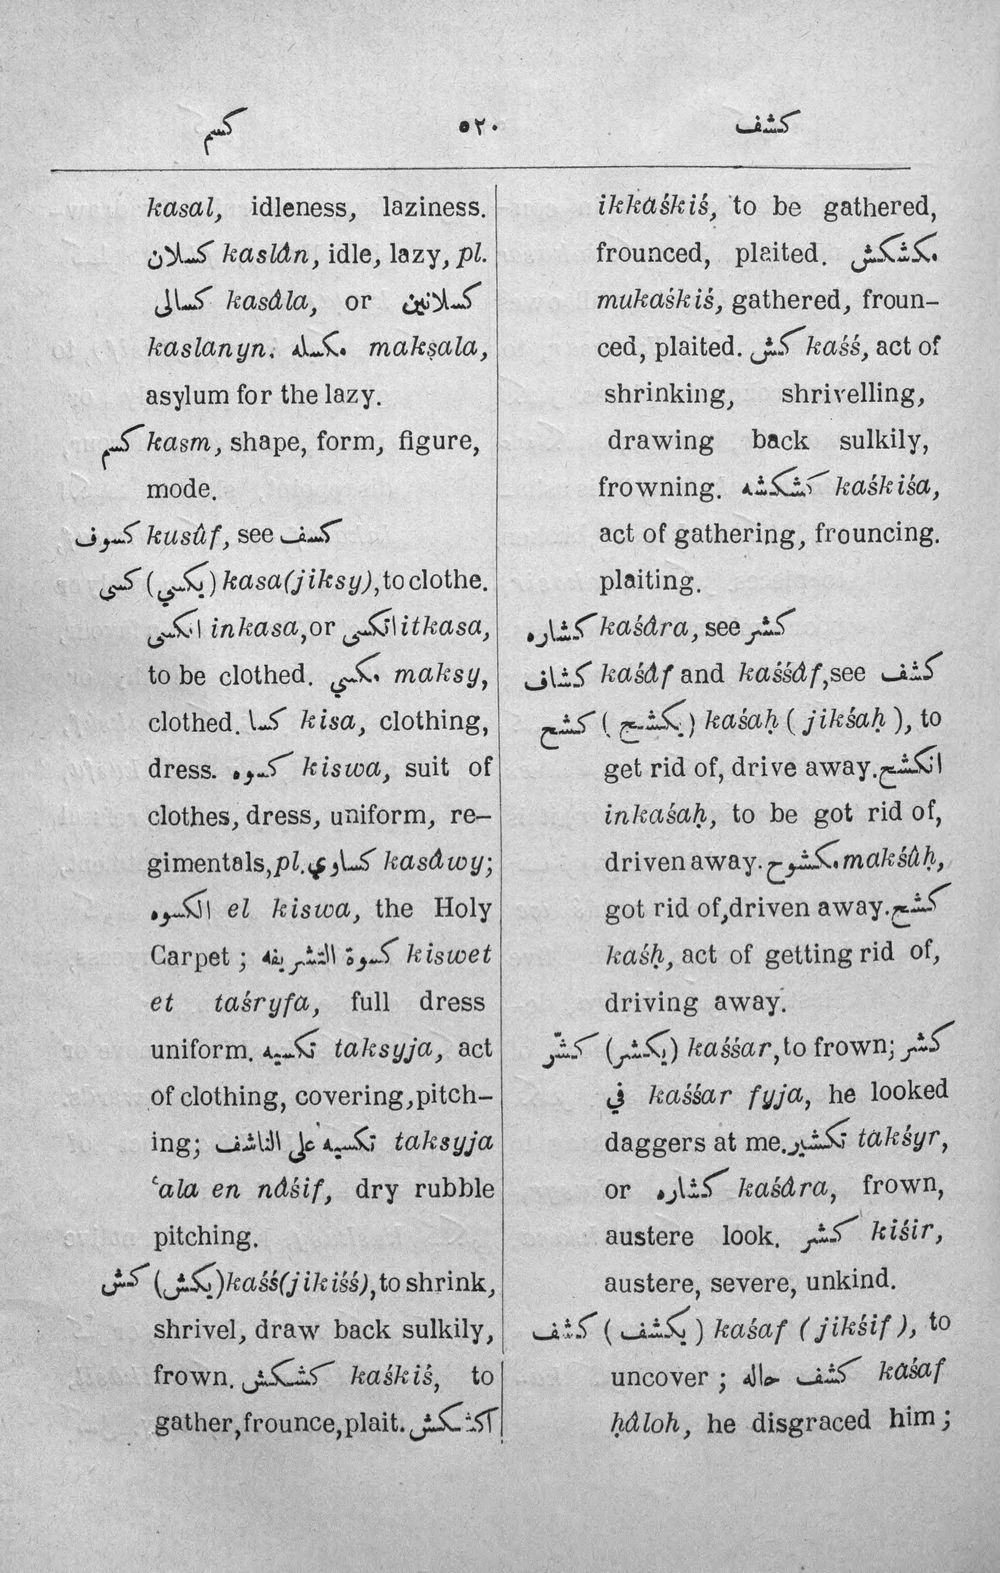 كسم ٥٢٠ كشف
kasal, idleness, laziness.
كسلان kaslân, idle, lazy, pl.
كسالى kasâla, or كسلانين
kaslanyn. مكسله makṣala,
asylum for the lazy.
كسم kasm, shape, form, figure,
mode.
كسوف kusûf, see كسف
كسى (يكسي) kasa(jiksy), to clothe.
انكسى inkasa, or اتكسى itkasa,
to be clothed. مكسي maksy,
clothed. كسا kisa, clothing,
dress. كسوه kiswa, suit of
clothes, dress, uniform, re-
gimentals, pl. كساوي kasâwy;
الكسوه el kiswa, the Holy
Carpet ; كسوة التشريفه kiswet
et taśryfa, full dress
uniform. تكسيه taksyja, act
of clothing, covering, pitch-
ing; تكسيه على الناشف taksyja
ʿala en nâśif, dry rubble
pitching.
كش (يكش) kaśś(jikiśś), to shrink,
shrivel, draw back sulkily,
frown. كشكش kaśkiś, to
gather, frounce, plait. اكشكش
ikkaśkiś, to be gathered,
frounced, plaited. مكشكش
mukaśkiś, gathered, froun-
ced, plaited. كش kaśś, act of
shrinking, shrivelling,
drawing back sulkily,
frowning. كشكشه kaśkiśa,
act of gathering, frouncing.
plaiting.
كشاره kaśâra, see كشر
كشاف kaśâf and kaśśâf, see كشف
كشح ( يكشح ) kaśaḥ ( jikśaḥ ), to
get rid of, drive away. انكشح
inkaśaḥ, to be got rid of,
driven away. مكشوح makśûḥ,
got rid of, driven away. كشح
kaśḥ, act of getting rid of,
driving away.
كشّر (يكشر) kaśśar, to frown; كشر
في kaśśar fyja, he looked
daggers at me. تكشير takśyr,
or كشاره kaśâra, frown,
austere look. كشر kiśir,
austere, severe, unkind.
كشف ( يكشف ) kaśaf ( jikśif ), to
uncover ; كشف حاله kaśaf
ḥâloh, he disgraced him ;